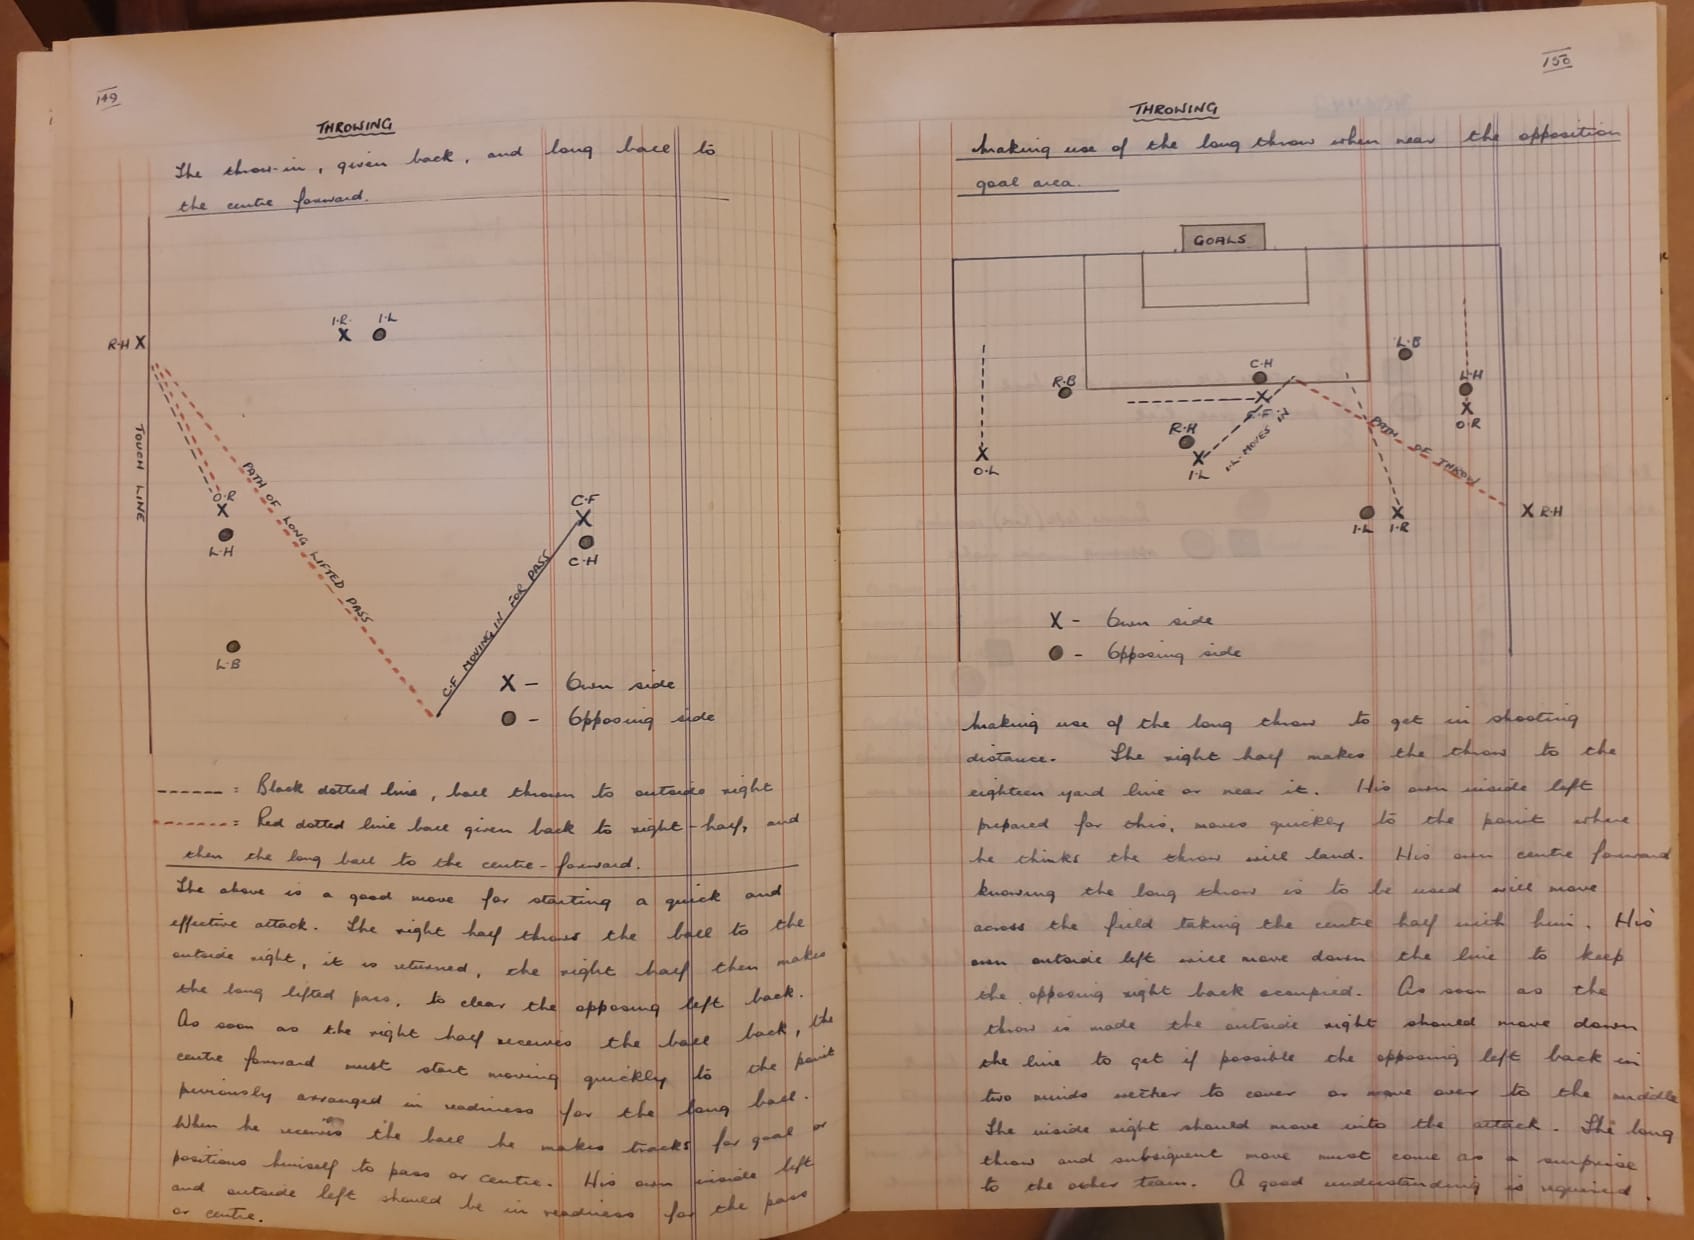 149
THROWING
The throw-in, given back, and long ball to
the centre forward.
I·R· I·L
X
R·H X
TOUCH LINE
PATH OF LONG LIFTED PASS
O·R
X
L·H
L·B
C·F
X
C·H
C·F MOVING IN FOR PASS
X - Own side
- Opposing side
------ : Black dotted line, ball thrown to outside right
------- : Red dotted line ball given back to right-half, and
then the long ball to the centre-forward.
The above is a good move for starting a quick and
effective attack. The right half throws the ball to the
outside right, it is returned, the right half then makes
the long lifted pass, to clear the opposing left back.
As soon as the right half receives the ball back, the
centre forward must start moving quickly to the point
previously arranged in readiness for the long ball.
When he receives the ball he makes tracks for goal or
positions himself to pass or centre. His own inside left
and outside left should be in readiness for the pass
or centre.
150
THROWING
Making use of the long throw when near the opposition
goal area.
GOALS
L·B
C·H
R·B
L·H
X
O·R
X
C·F
R·H
X
I·L
I·L· MOVES IN
PATH OF THROW
X
O·L
X
I·L I·R
X R·H
X - Own side
- Opposing side
Making use of the long throw to get in shooting
distance. The right half makes the throw to the
eighteen yard line or near it. His own inside left
prepared for this, moves quickly to the point where
he thinks the throw will land. His own centre forward
knowing the long throw is to be used will move
across the field taking the centre half with him. His
own outside left will move down the line to keep
the opposing right back occupied. As soon as the
throw is made the outside right should move down
the line to get if possible the opposing left back in
two minds wether to cover or move over to the middle
The inside right should move into the attack. The long
throw and subsequent move must come as a surprise
to the other team. A good understanding is required.